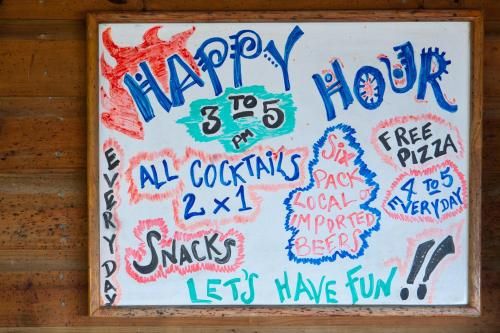 HAPPY HOUR
3 TO 5
PM
EVERYDAY
ALL COCKTAILS
2 x 1
SNACKS
SIX
PACK
LOCAL O
IMPORTED
BEERS
FREE
PIZZA
4 TO 5
EVERYDAY
LET'S HAVE FUN!!